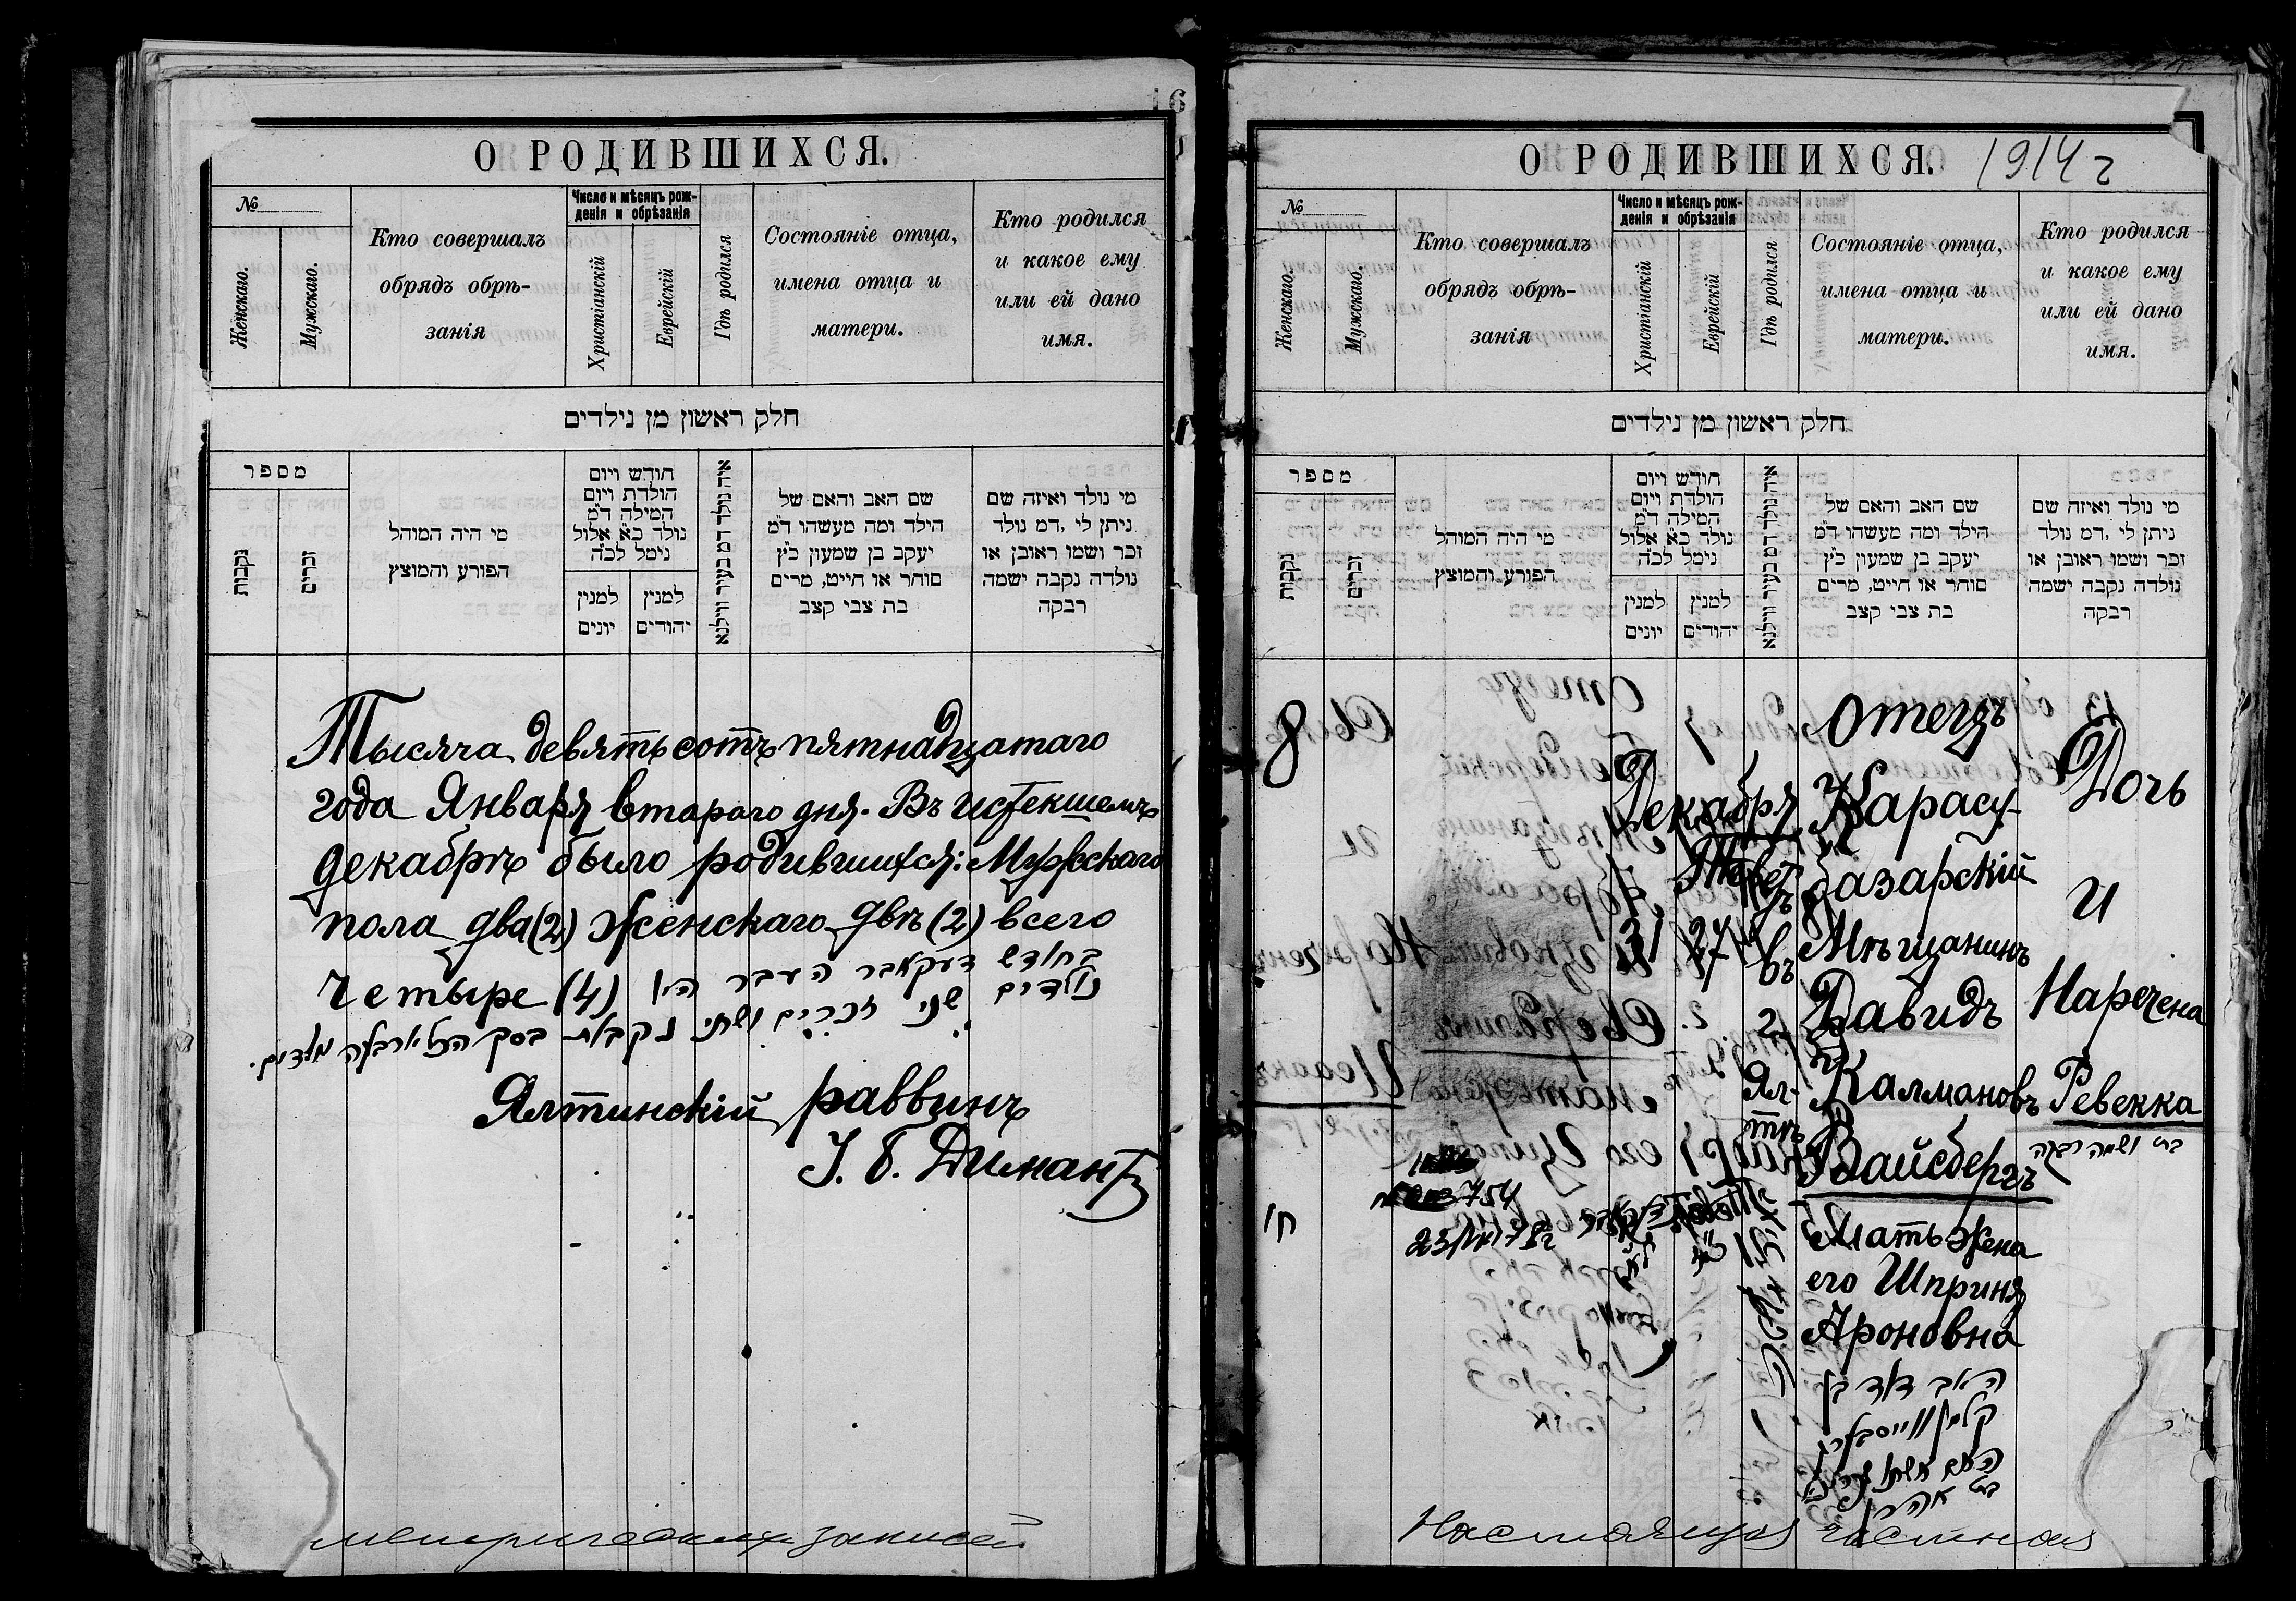 16
О РОДИВШИХСЯ.
№
Женскаго.
Мужскаго.
Кто совершалъ
обрядъ обрѣ-
занія
Число и мѣсяцъ рож-
денія и обрѣзанія
Христіанскій
Еврейскій
Гдѣ родился
Состояніе отца,
имена отца и
матери.
Кто родился
и какое ему
или ей дано
имя.
חלק ראשון מן נילדים
מספר
נקבות
זכרים
מי היה המוהל
הפורע והמוצץ
חודש ויום
הולדת ויום
המילה ד״מ
נולד כ״א אלול
נימל לכ״ה
למנין
יונים
למנין
יהודים
איה נולד דמ בעיר ווילנא
שם האב והאם של
הילד ומה מעשהו ד״מ
יעקב בן שמעון כ״ץ
סוחר או חייט, מרים
בת צבי קצב
מי נולד ואיזה שם
ניתן לי ,דמ נולד
זכר ושמו ראובן או
נולדה נקבה ישמה
רבקה
Тысяча девятьсотъ пятнадцатаго
года Января втораго дня. Въ истекшемъ
декабрѣ было родившихся: Мужескаго
пола два (2) Женскаго двѣ (2) всего
Четыре (4) בחודש דעקאבר העבר היו
נולדים שני זכרים ושתי נקבות בסך הכל ארבעה
Ялтинскій раввинъ
І. Б. Димантъ
метрическихъ записей
О РОДИВШИХСЯ.
1914 г
№
Женскаго.
Мужскаго.
Кто совершалъ
обрядъ обрѣ-
занія
Число и мѣсяцъ рож-
денія и обрѣзанія
Христіанскій
Еврейскій
Гдѣ родился
Состояніе отца,
имена отца и
матери.
Кто родился
и какое ему
или ей дано
имя.
חלק ראשון מן נילדים
מספר
נקבות
זכרים
מי היה המוהל
הפורע והמוצץ
חודש ויום
הולדת ויום
המילה ד״מ
נולד כ״א אלול
נימל לכ״ה
למנין
יונים
למנין
יהודים
איה נולד דמ בעיר ווילנא
שם האב והאם של
הילד ומה מעשהו ד״מ
יעקב בן שמעון כ״ץ
סוחר או חייט, מרים
בת צבי קצב
מי נולד ואיזה שם
ניתן לי ,דמ נולד
זכר ושמו ראובן או
נולדה נקבה ישמה
רבקה
8
Декабря
31
Тевет
27
Въ
г.
Ял-
тѣ
Отецъ
Карасу-
базарскій
Мѣщанинъ
Давидъ
Калмановъ
Вайсбергъ
Мать жена
его Шприня
Ароновна
האב דוד בן
קלמן ווייסבערג
האם אשתו
בת אהרן
Дочь
и
Наречена
Ревекка
בת ושמה רבקה
Настоящая частная